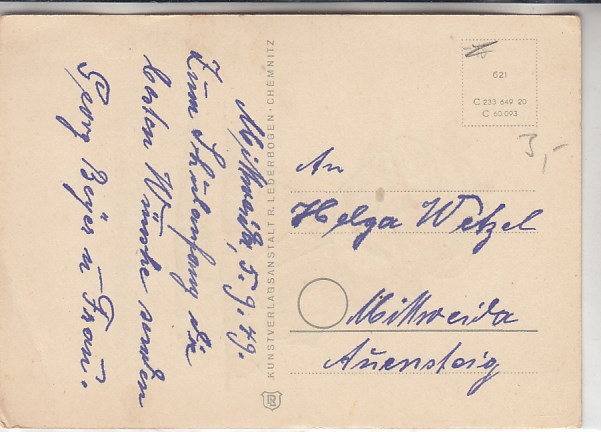 Mittweida, 5.9.49.
Zum Schulanfang die
besten Wünsche senden
Georg Beyer u Frau.
KUNSTVERLAGSANSTALT R. LEDERBOGEN · CHEMNITZ
621
C 233 649 20
C 60.093
3,-
An
Helga Wetzel
Mittweida
Auensteig